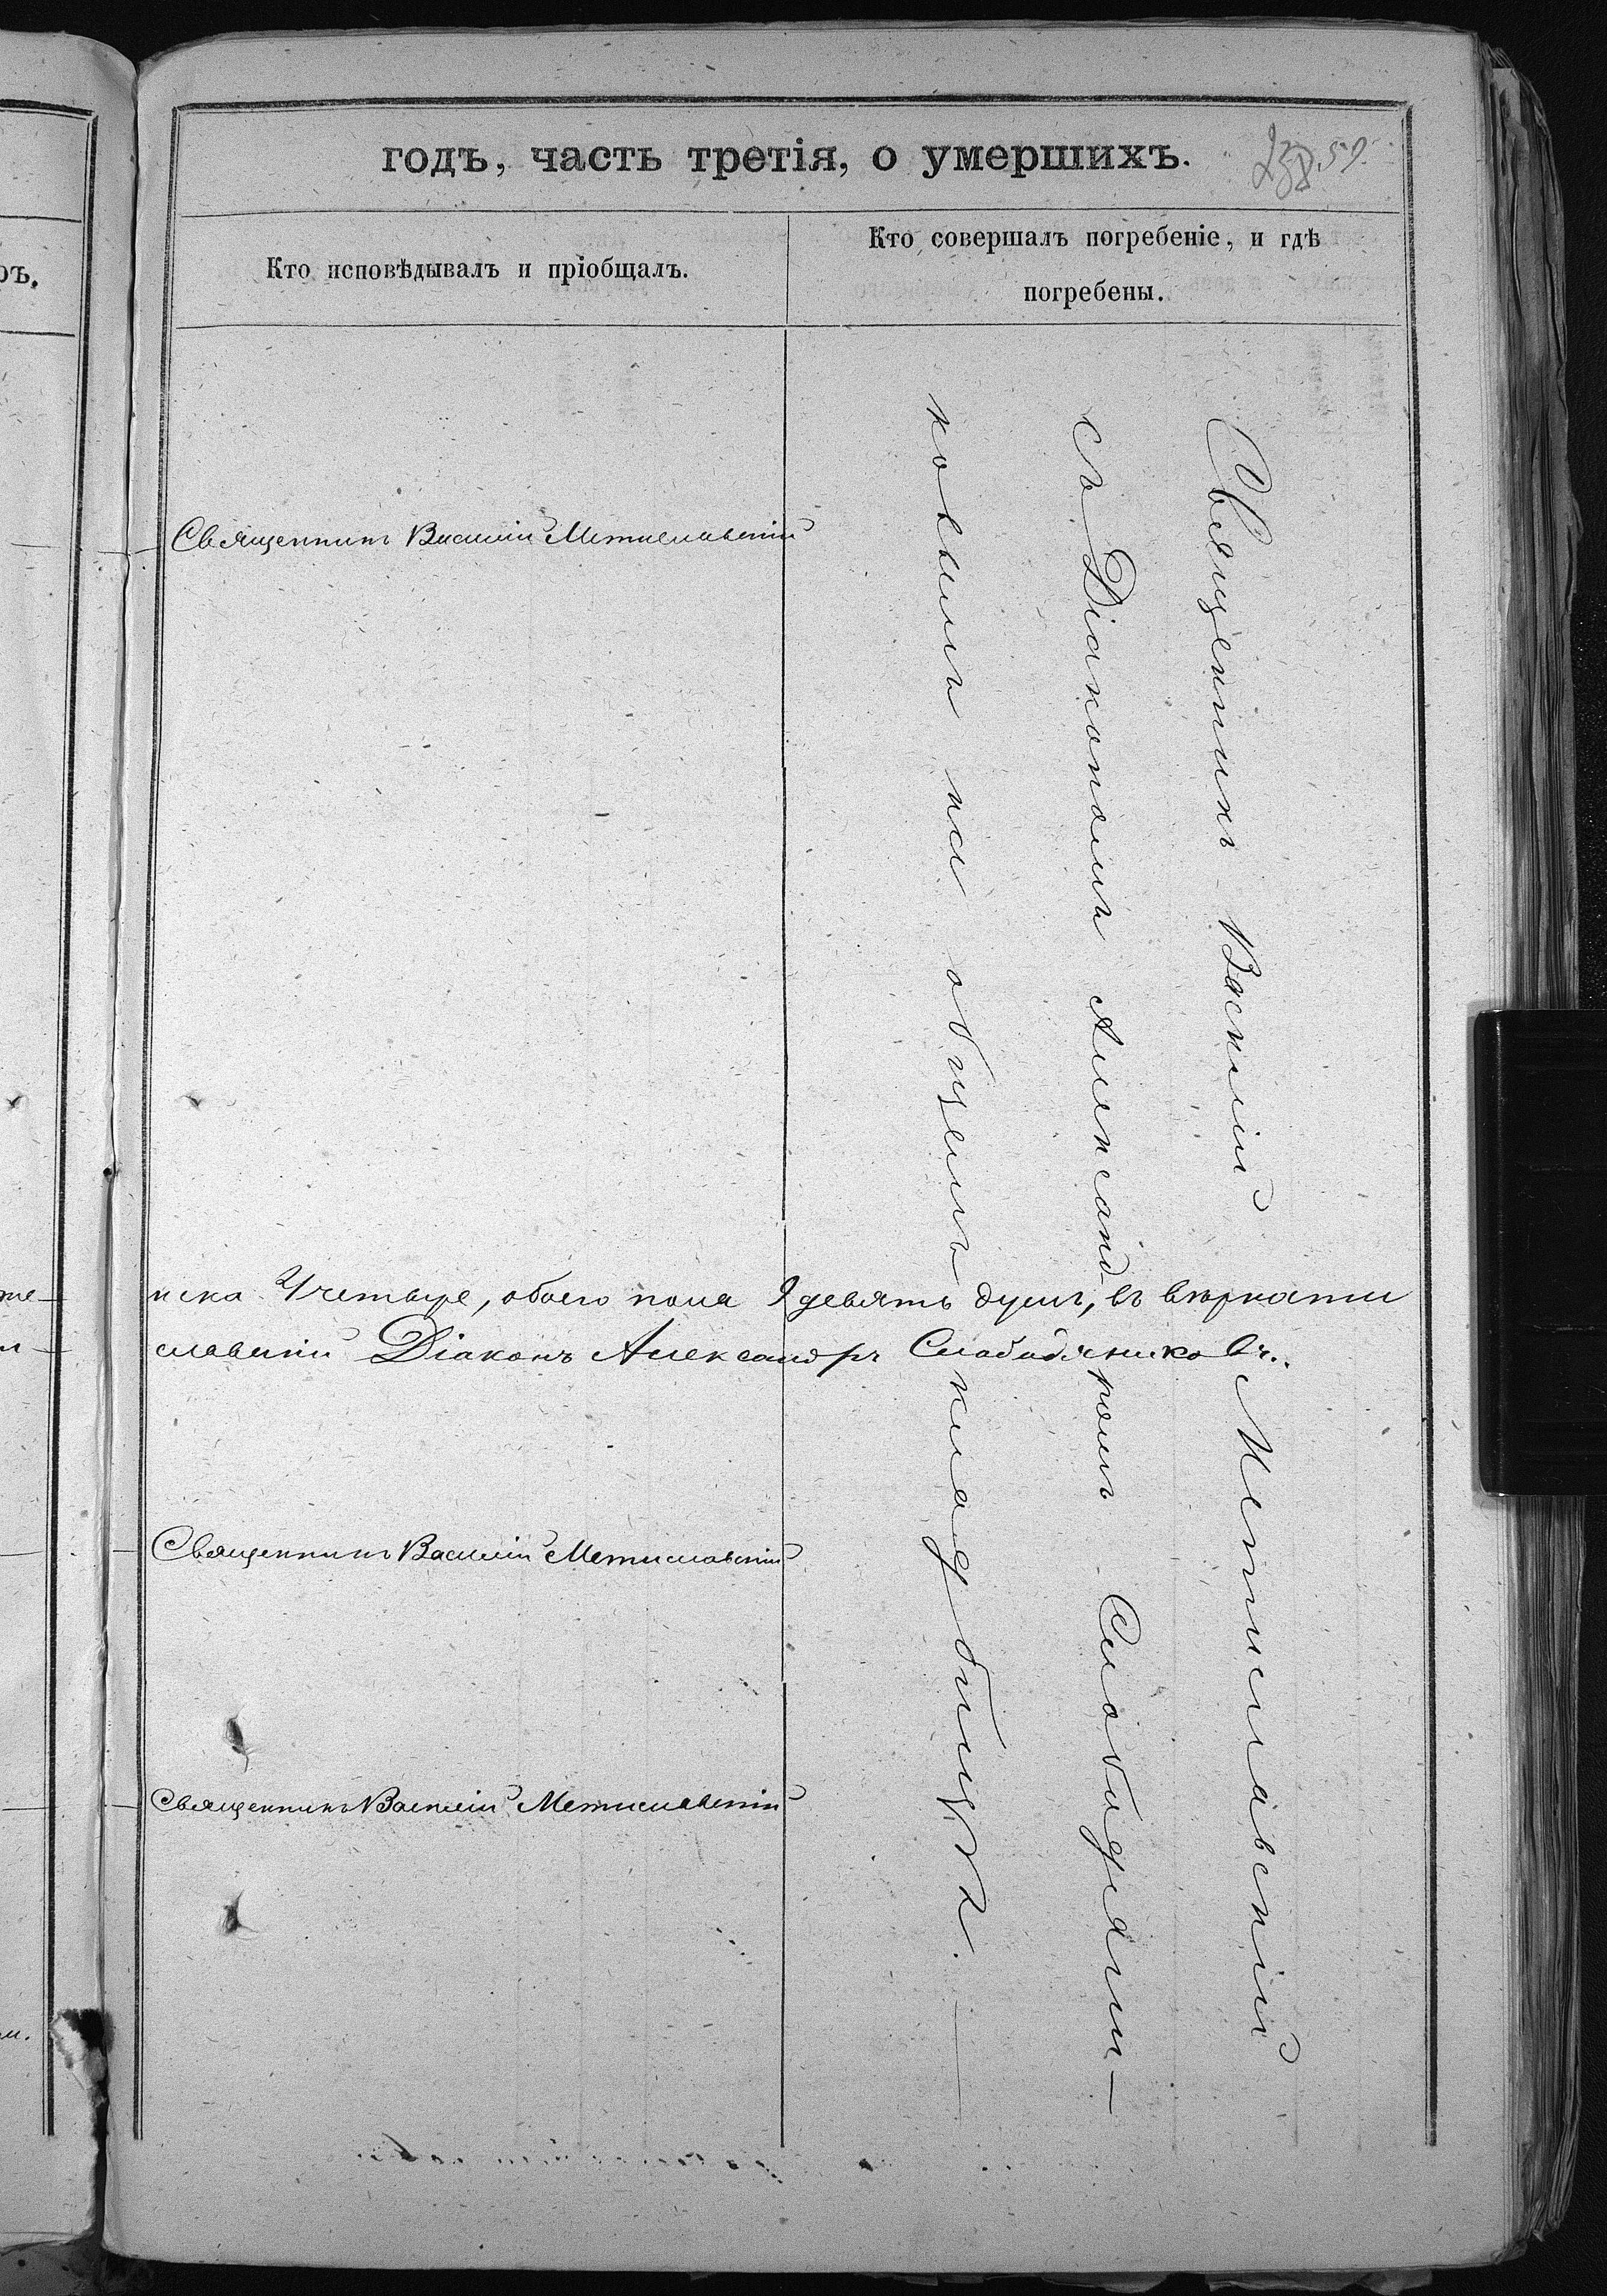 годъ, часть третія, о умершихъ.
59.
Кто исповѣдывалъ и пріобщалъ.
Кто совершалъ погребеніе, и гдѣ
погребены.
Священникъ Василій Мстиславскій
нска 4 четыре, обоего пола 9 девять душъ, въ вѣрности
славскій Діаконъ Александръ Слободяниковъ.
Священникъ Василій Мстиславскій
Священникъ Василій Мстиславскій
Священникъ Василій Мстиславскій
съ Діакономъ Александромъ Слободяни-
ковымъ на общемъ кладбищѣ.
ръ.